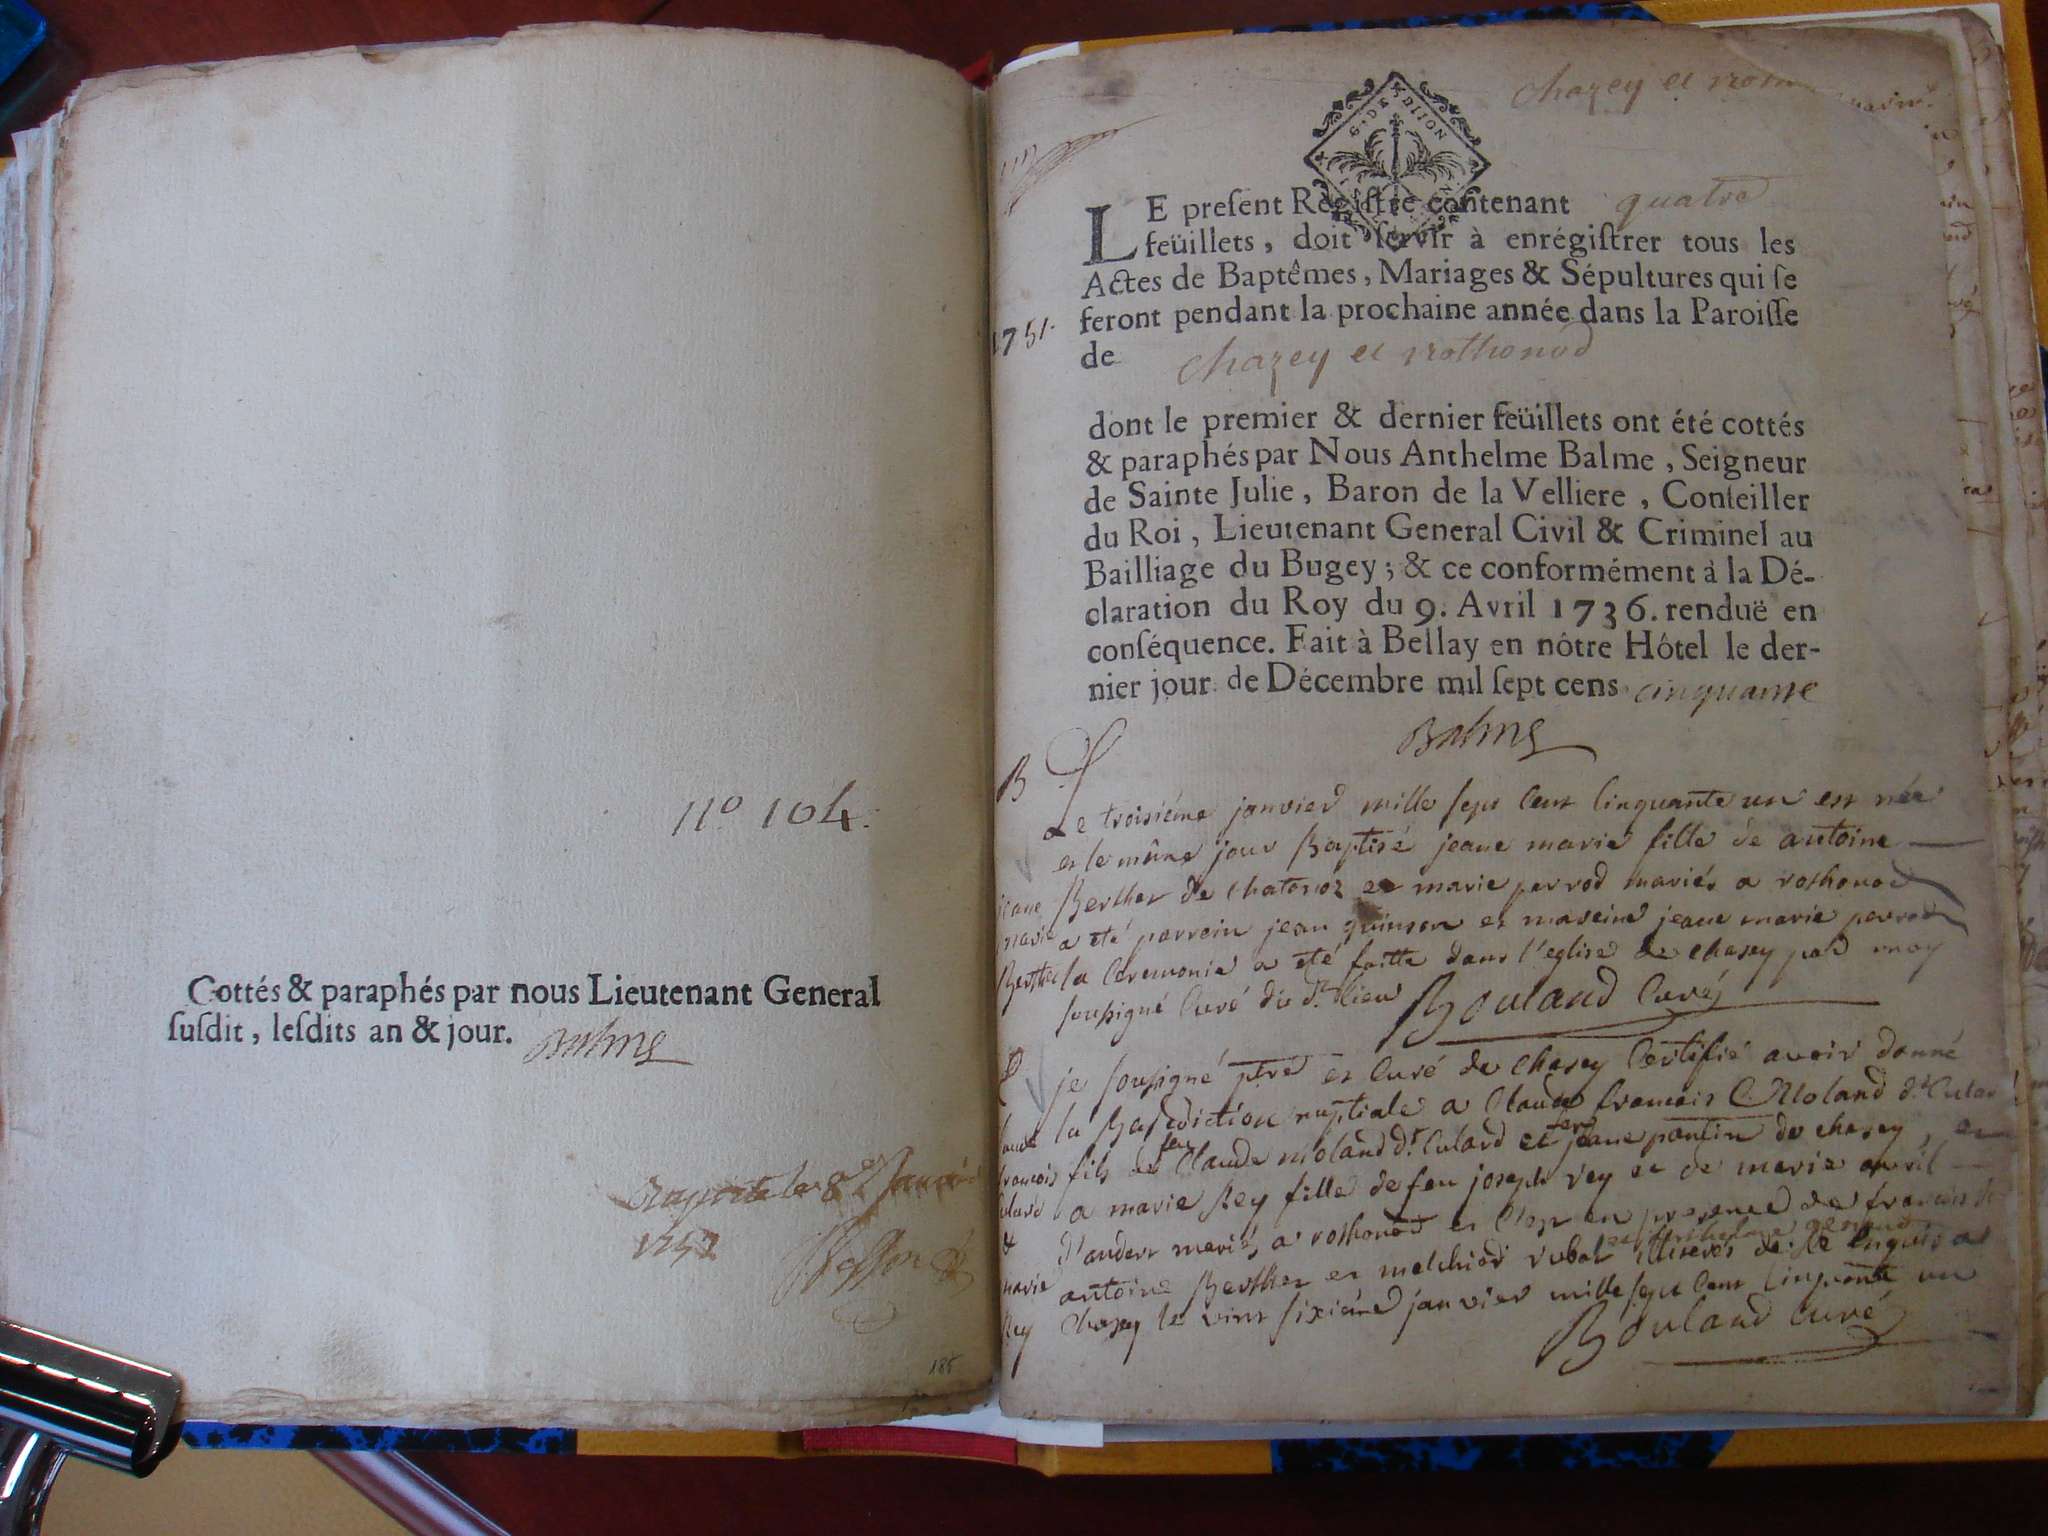 n° 104.
Cottés & paraphés par nous Lieutenant General
suſdit, leſdits an & jour. Balme
le 8e Janvier
185
chazey et
G. DE DIION
LE preſent Regiſtre contenant quatre
feüillets, doit ſervir à enrégiſtrer tous les
Actes de Baptêmes, Mariages & Sépultures qui ſe
feront pendant la prochaine année dans la Paroiſſe
1751.
de chazey et rothonod
dont le premier & dernier feüillets ont été cottés
& paraphés par Nous Anthelme Balme, Seigneur
de Sainte Julie, Baron de la Velliere, Conſeiller
du Roi, Lieutenant General Civil & Criminel au
Bailliage du Bugey; & ce conformément à la Dé-
claration du Roy du 9. Avril 1736. renduë en
conſéquence. Fait à Bellay en nôtre Hôtel le der-
nier jour de Décembre mil ſept cens cinquante
Balme
B
Le troisiéme janvier mille sept cent cinquante un est née
et le même jour Baptisé jeane marie fille de antoine
jeane Berthet de chatonoz et marie perrod mariés a rothonod
marie a eté parrein jean quinson et mareine jeane marie perrod
Berthet la ceremonie a eté faitte dans l'eglise de chasey par moy
soussigné curé du dt lieu Bouland curé
je soussigné ptre et curé de chasey certifie avoir donné
la Benediction nuptiale a claude francois Moland dt Culard
francois fils de feu claude moland dt Culard et feu jeane pontin de chasey, et
a marie Rey fille de feu joseph rey et de marie avril
& d'andert mariés a rothonod et c'est en presence de francois
et anthelme
marie antoine Berthet et melchior rubat de ce enquis a
Rey chasey le vint sixiéme janvier mille sept cent cinquante un
Bouland curé